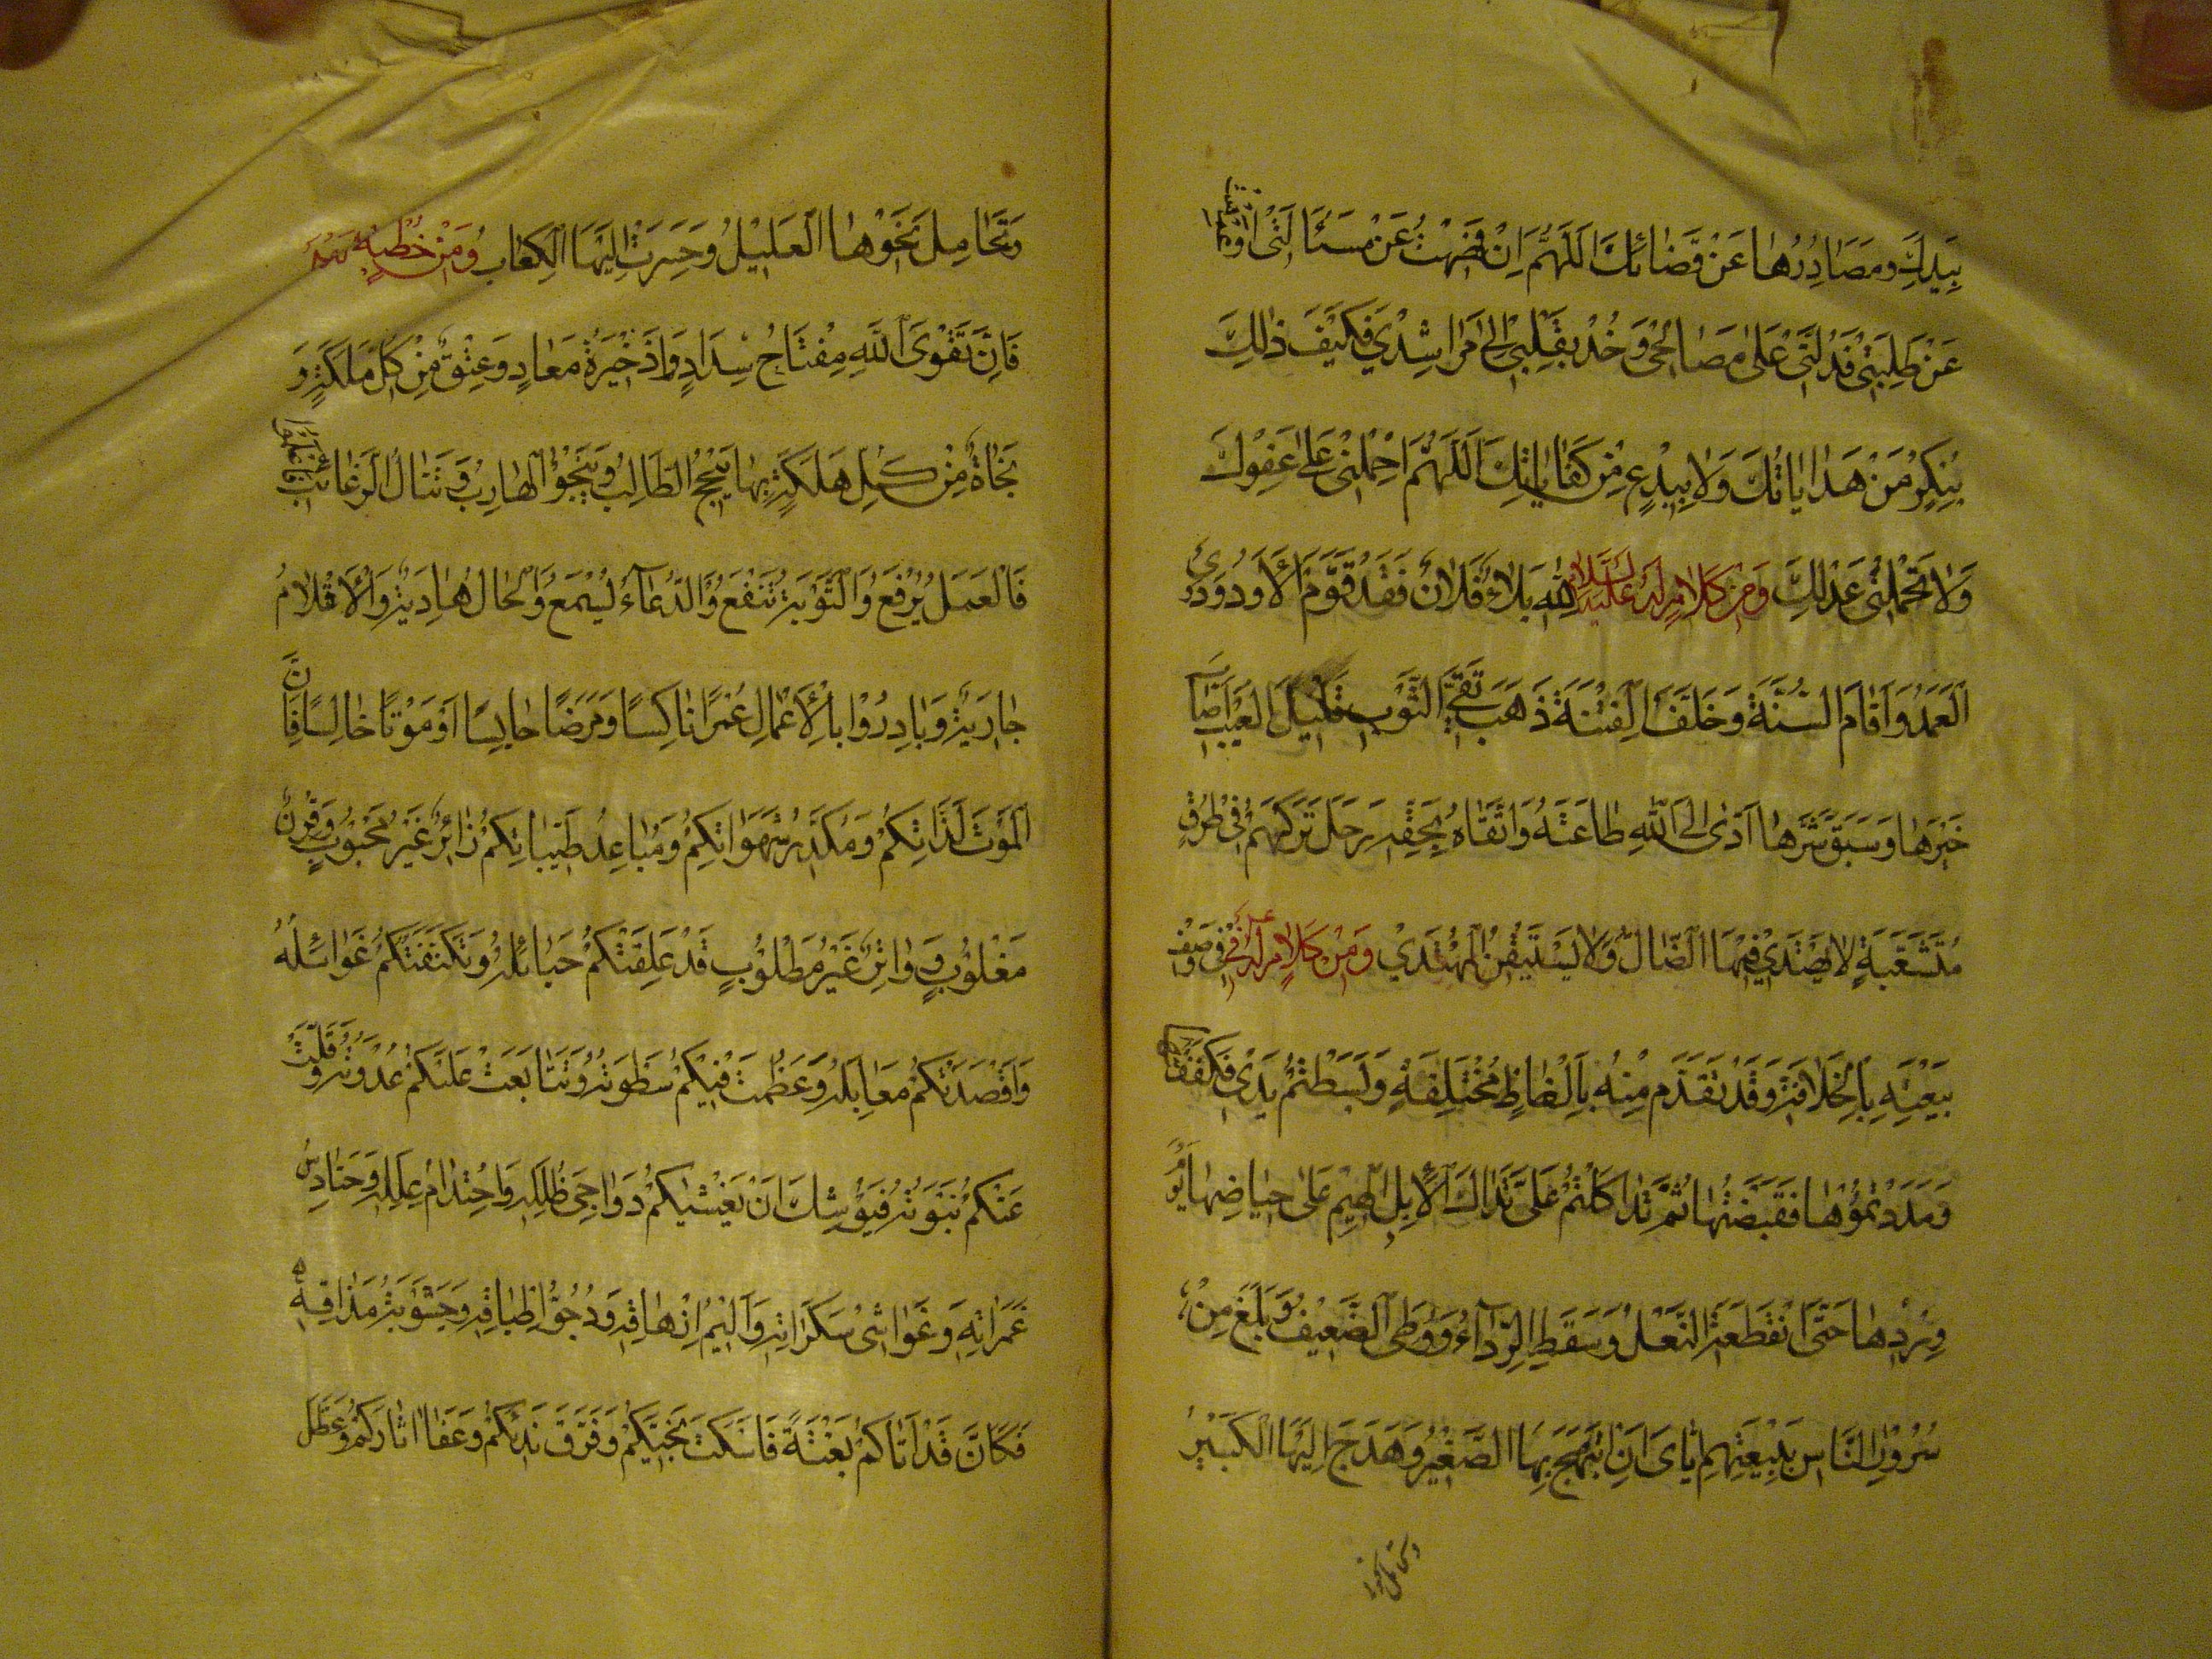 بِيَدِكَ وَمَصَادِرُهَا عَنْ قَضَائِكَ اَللّٰهُمَّ اِنْ فَهِهْتُ عَنْ مَسْئَلَتِى اَوْ عَمِهْتُ
عَنْ طَلِبَتِى فَدُلَّنِى عَلٰى مَصَالِحِى وَخُذْ بِقَلْبِى اِلٰى مَرَاشِدِي فَلَيْسَ ذٰلِكَ
بِنُكْرٍ مِنْ هَدَايَاتِكَ وَلَا بِبِدْعٍ مِنْ كِفَايَاتِكَ اَللّٰهُمَّ احْمِلْنِى عَلٰى عَفْوِكَ
وَلَا تَحْمِلْنِى عَدْلِكَ وَمِنْ كَلَامٍ لَهُ عَلَيْهِ السَّلَامُ لِلّٰهِ بَلَاءُ فُلَانٍ فَقَدْ قَوَّمَ الْاَوَدَ وَدَاوٰى
الْعَمَدَ وَاَقَامَ السُّنَّةَ وَخَلَّفَ الْفِتْنَةَ ذَهَبَ نَقِيَّ الثَّوْبِ قَلِيلَ الْعَيْبِ اَصَابَ
خَيْرَهَا وَسَبَقَ شَرَّهَا اَدّٰى اِلَى اللّٰهِ طَاعَتَهُ وَاتَّقَاهُ بِحَقِّهِ رَحَلَ تَرَكَهُمْ فِى طُرُقٍ
مُتَشَعِّبَةٍ لَا يَهْتَدِي فِيهَا الضَّالُّ وَلَا يَسْتَيْقِنُ الْمُهْتَدِيْ وَمِنْ كَلَامٍ لَهُ فِى وَصْفِ
بَيْعَتِهِ بِالْخِلَافَةِ وَقَدْ تَقَدَّمَ مِنْهُ بِاَلْفَاظٍ مُخْتَلِفَةٍ وَبَسَطْتُمْ يَدِى فَكَفَفْتُهَا
وَمَدَدْتُمُوْهَا فَقَبَضْتُهَا ثُمَّ تَدَاكَكْتُمْ عَلَىَّ تَدَاكَّ الْاِبِلِ الْهِيمِ عَلٰى حِيَاضِهَا يَوْمَ
وِرْدِهَا حَتّٰى انْقَطَعَتِ النَّعْلُ وَسَقَطَ الرِّدَآءُ وَوُطِىَ الضَّعِيْفُ وَبَلَغَ مِنْ
سُرُوْرِ النَّاسِ بِبَيْعَتِهِمْ اِيَّاىَ اَنِ ابْتَهَجَ بِهَا الصَّغِيْرُ وَهَدَجَ اِلَيْهَا الْكَبِيْرُ
وتحامل نحوها
وَتَحَامَلَ نَحْوَهَا الْعَلِيْلُ وَحَسَرَتْ اِلَيْهَا الْكِعَابُ وَمِنْ خُطْبَةٍ لَهُ
فَاِنَّ تَقْوَى اللّٰهِ مِفْتَاحُ سِدَادٍ وَذَخِيْرَةُ مَعَادٍ وَعِتْقٌ مِنْ كُلِّ مَلَكَةٍ وَ
نَجَاةٌ مِنْ كُلِّ هَلَكَةٍ بِهَا يَنْجَحُ الطَّالِبُ وَيَنْجُوْ الْهَارِبُ وَتُنَالُ الرَّغَائِبُ فَاعْمَلُوا
فَالْعَمَلُ يُرْفَعُ وَالتَّوْبَةُ تَنْفَعُ وَالدُّعَآءُ يُسْمَعُ وَالْحَالُ هَادِيَةٌ وَالْاَقْلَامُ
جَارِيَةٌ وَبَادِرُوْا بِالْاَعْمَالِ عُمْرًا نَاكِسًا وَمَرَضًا حَابِسًا اَوْ مَوْتًا خَالِسًا فَاِنَّ
الْمَوْتَ لَذَّاتِكُمْ وَمُكَدِّرُ شَهَوَاتِكُمْ وَمُبَاعِدُ طَيِّبَاتِكُمْ زَائِرٌ غَيْرُ مَحْبُوْبٍ وَقِرْنٌ
مَغْلُوْبٍ وَوَاتِرٌ غَيْرُ مَطْلُوْبٍ قَدْ عَلِقَتْكُمْ حَبَائِلُهُ وَتَكَنَّفَتْكُمْ غَوَائِلُهُ
وَاَقْصَدَتْكُمْ مَعَابِلُهُ وَعَظُمَتْ فِيْكُمْ سَطْوَتُهُ وَتَتَابَعَتْ عَلَيْكُمْ عُدْوَتُهُ وَقَلَّتْ
عَنْكُمْ نَبْوَتُهُ فَيُوْشِكُ اَنْ يَغْشٰيكُمْ دَوَاجِى ظُلَلِهِ وَاحْتِدَامُ عِلَلِهِ وَحَنَادِسُ
غَمَرَاتِهِ وَغَوَاشِى سَكَرَاتِهِ وَاَلِيْمُ اِزْهَاقِهِ وَدُجُوُّ اِطْبَاقِهِ وَجُشُوْبَةُ مَذَاقِهِ
فَكَاَنْ قَدْ اَتَاكُمْ بَغْتَةً فَاَسْكَتَ نَجِيَّكُمْ وَفَرَّقَ نَدِيَّكُمْ وَعَفّٰا اٰثَارَكُمْ وَعَطَّلَ